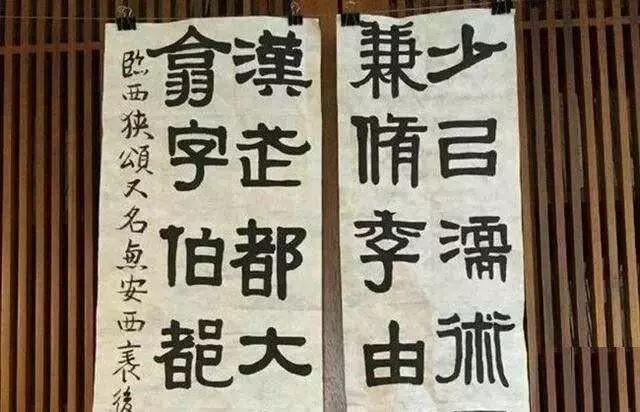 少㠯濡術
兼脩季由
漢武都大
翕字伯都
臨西狹頌又名惠安西表後